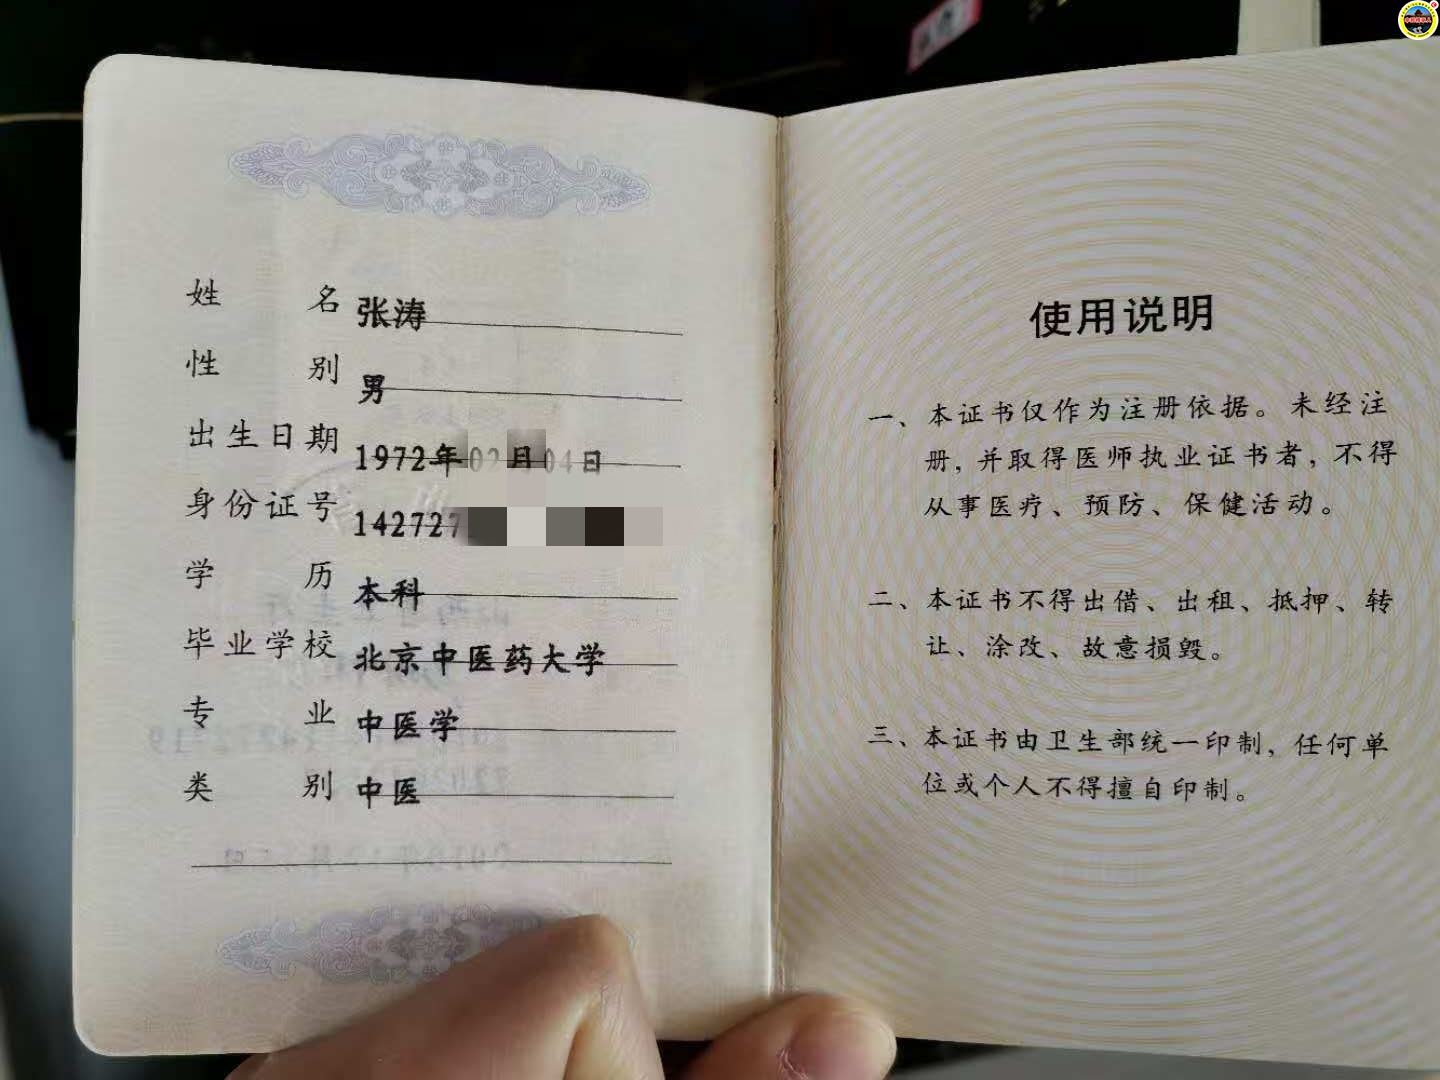 姓名 张涛
性别 男
出生日期 1972年02月04日
身份证号 142727
学历 本科
毕业学校 北京中医药大学
专业 中医学
类别 中医
使用说明
一、本证书仅作为注册依据。未经注
册,并取得医师执业证书者,不得
从事医疗、预防、保健活动。
二、本证书不得出借、出租、抵押、转
让、涂改、故意损毁。
三、本证书由卫生部统一印制,任何单
位或个人不得擅自印制。